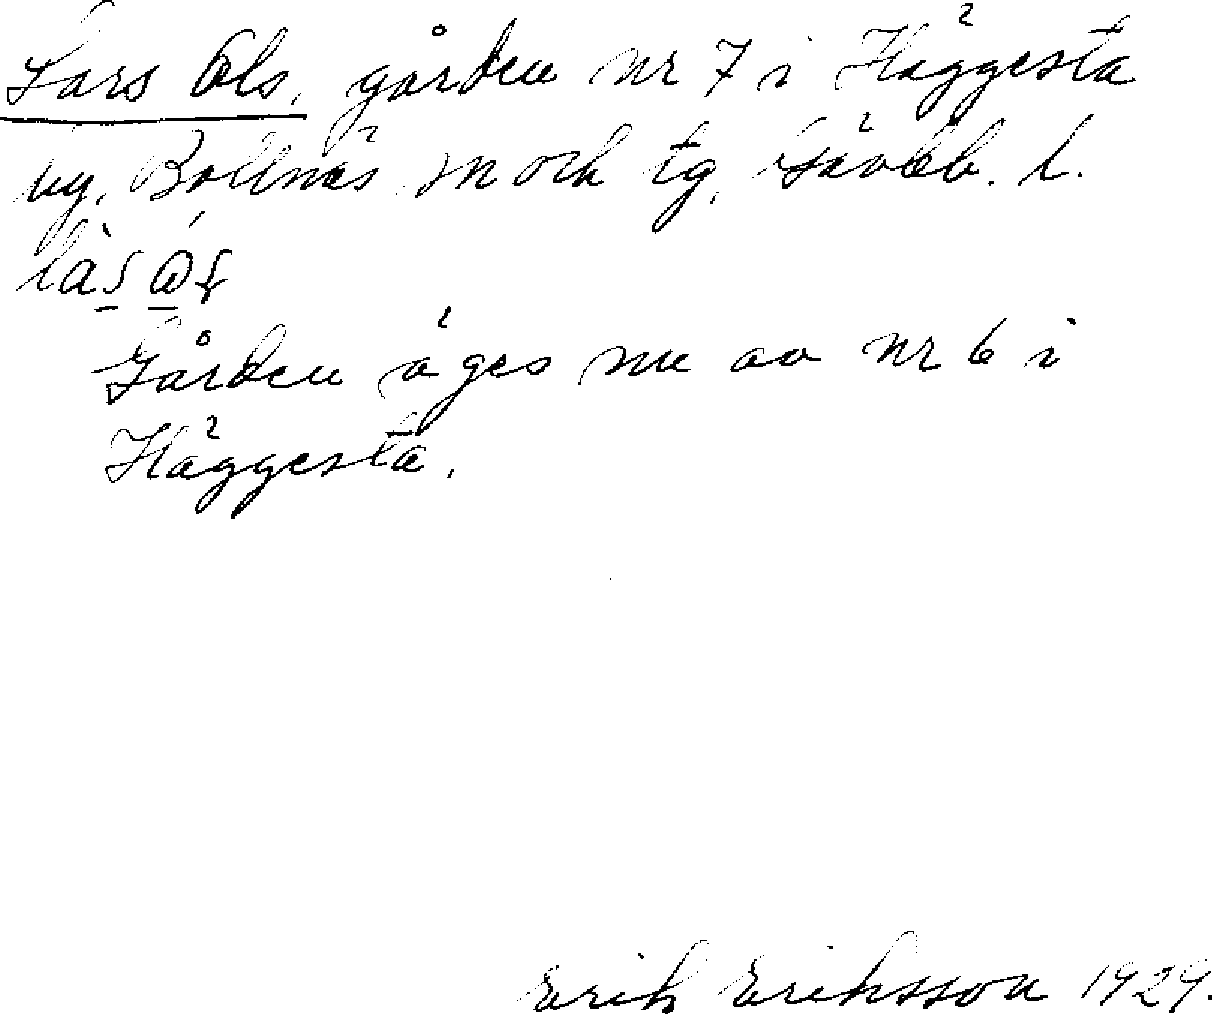 Lars Ols, gården nr 7 i Häggesta
by, Bollnäs sn och tg, Gävleb. l.
Gården äges nu av nr 6 i
Häggesta.
Erik Eriksson 1929.